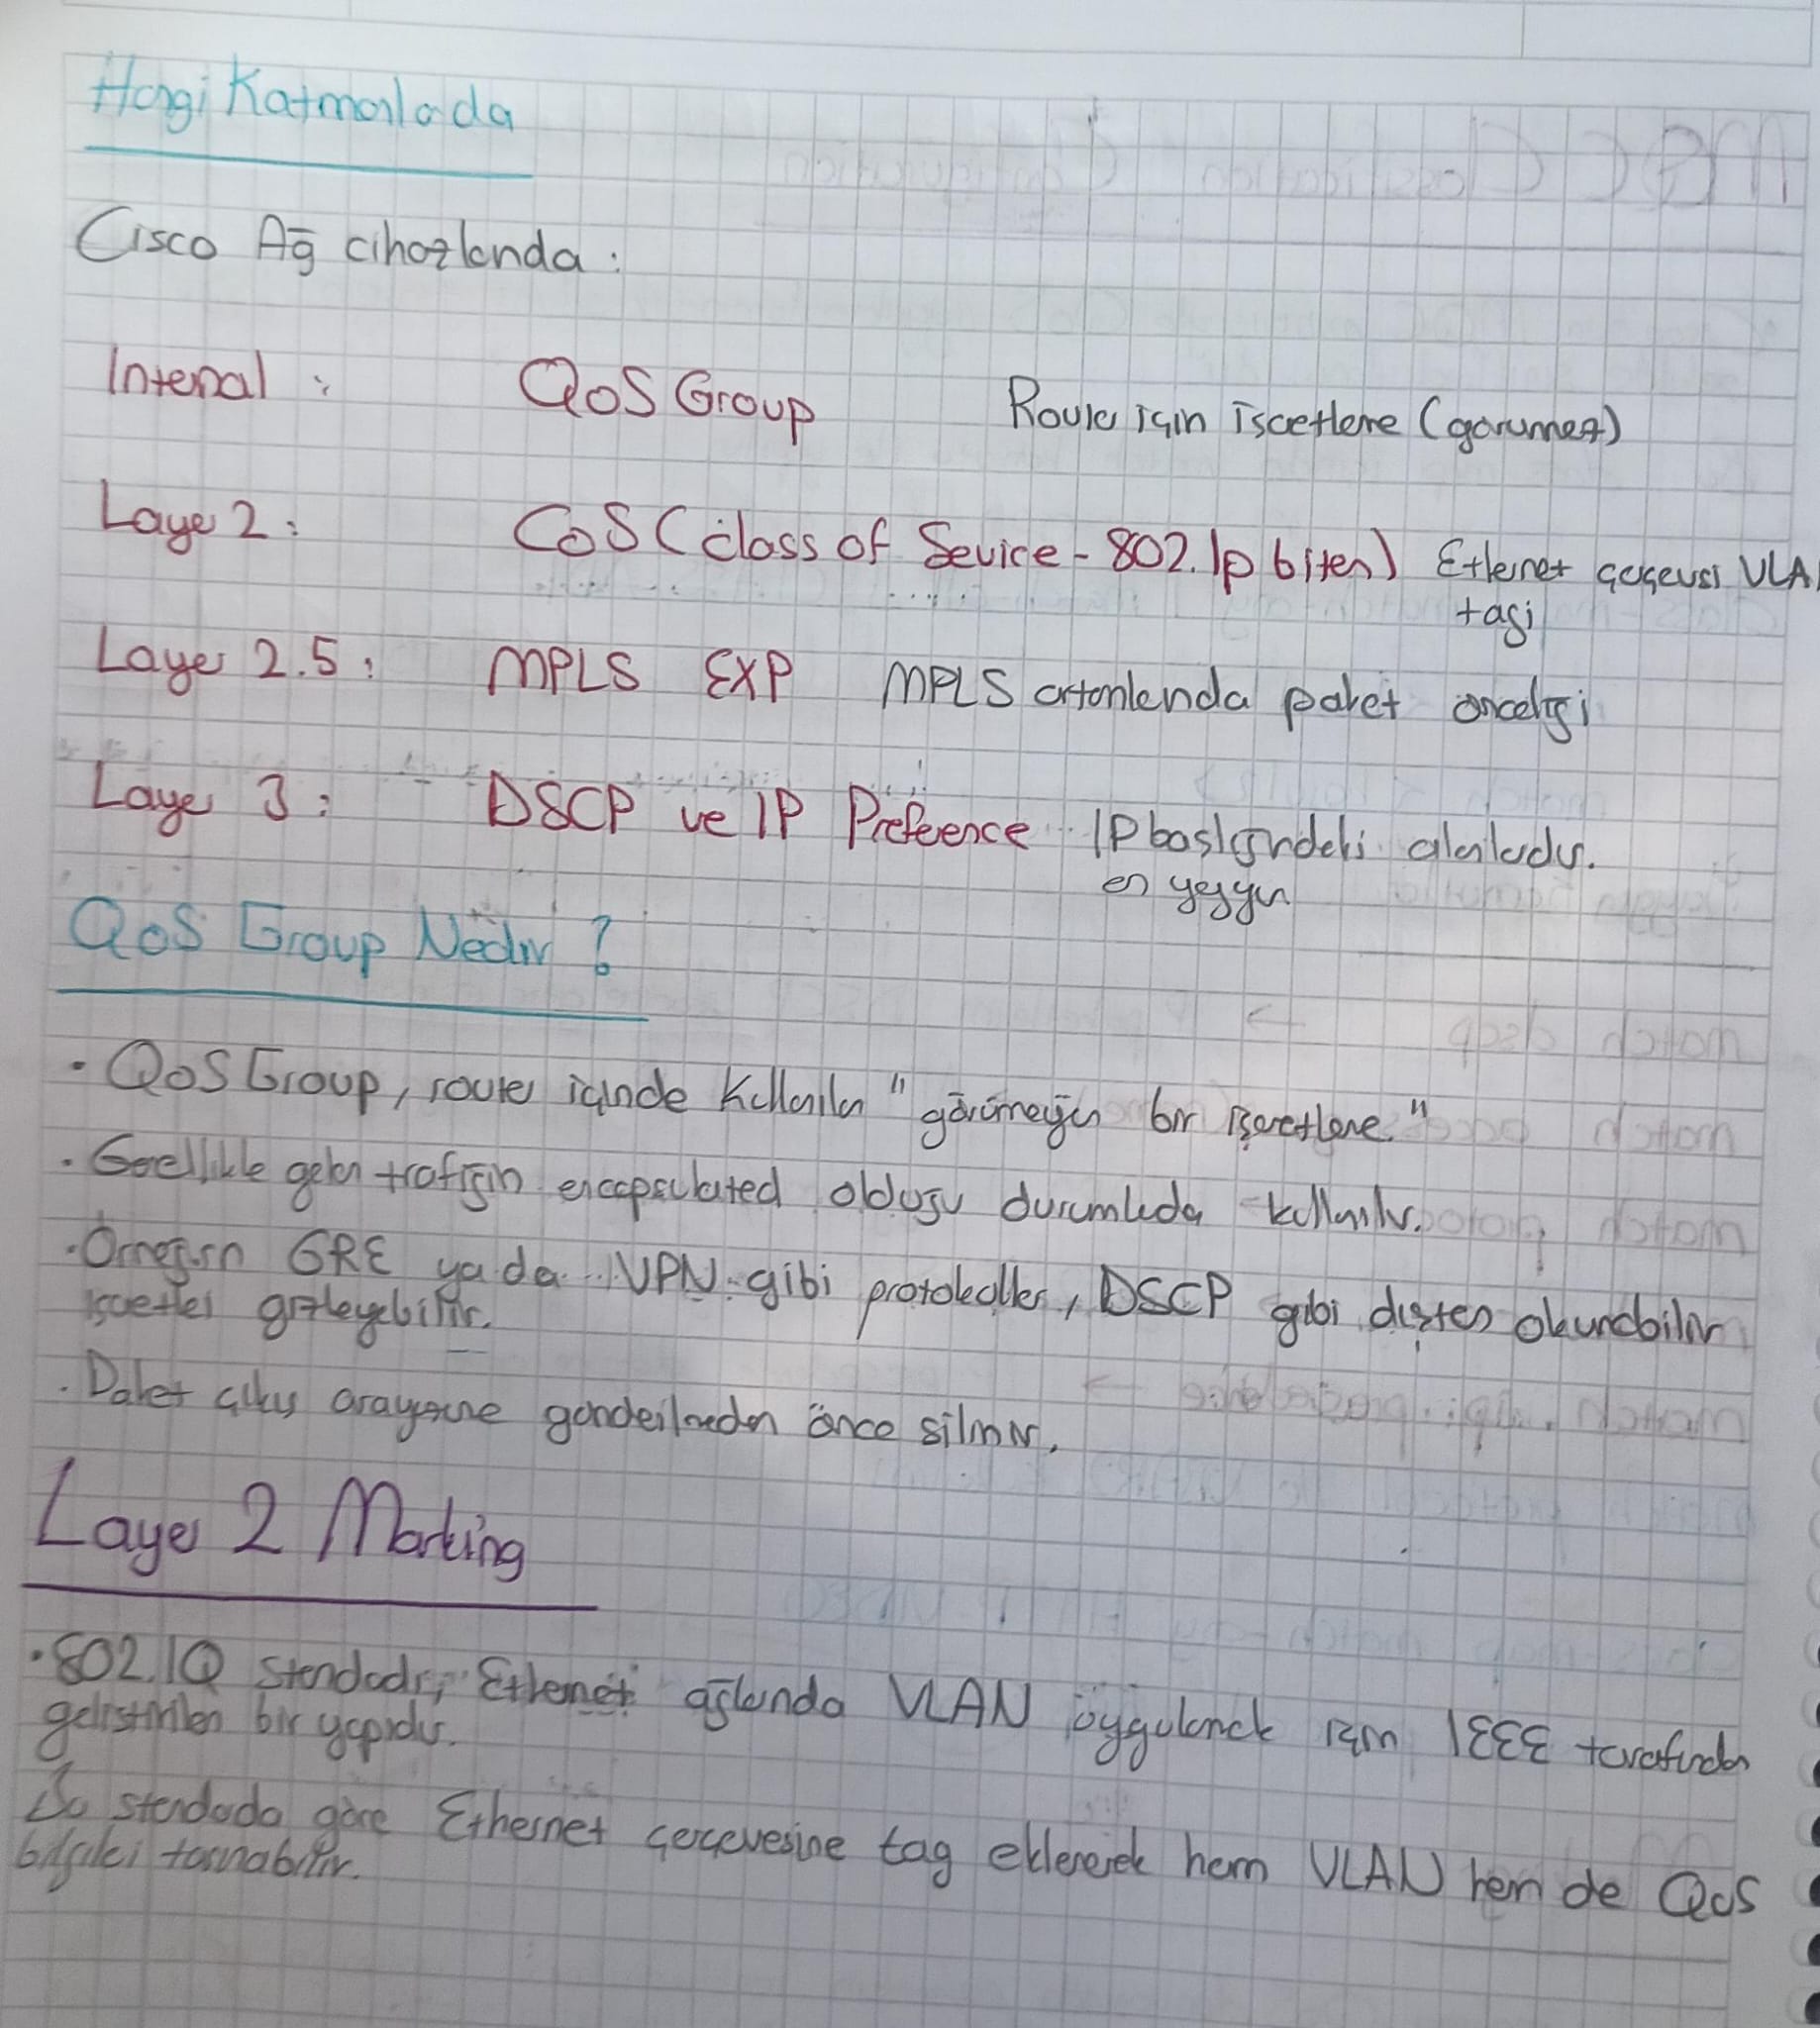 Hangi Katmanlarda
Cisco Ağ cihazlarında :
Internal : QoS Group Router için İşaretleme (görünmez)
Layer 2 : CoS (class of Service - 802.1p biten) Ethernet çerçevesi VLA
tagi
Layer 2.5 : MPLS EXP MPLS ortamlarında paket önceliği
Layer 3 : DSCP ve IP Preference IP başlığındeki alanlardır.
en yaygın
QoS Group Nedir ?
• QoS Group, router içinde kullanılan "görünmeyen bir işaretleme."
• Genellikle gelen trafiğin encapsulated olduğu durumlarda kullanılır.
• Örneğin GRE ya da VPN gibi protokoller, DSCP gibi dıştan okunabilir
işaretleri gizleyebilir.
• Paket çıkış arayüzüne gönderilmeden önce silinir.
Layer 2 Marking
• 802.1Q standardı, Ethernet ağlarında VLAN uygulamak için IEEE tarafından
geliştirilen bir yapıdır.
Bu standarda göre Ethernet çerçevesine tag eklenerek hem VLAN hem de QoS
bilgileri taşınabilir.